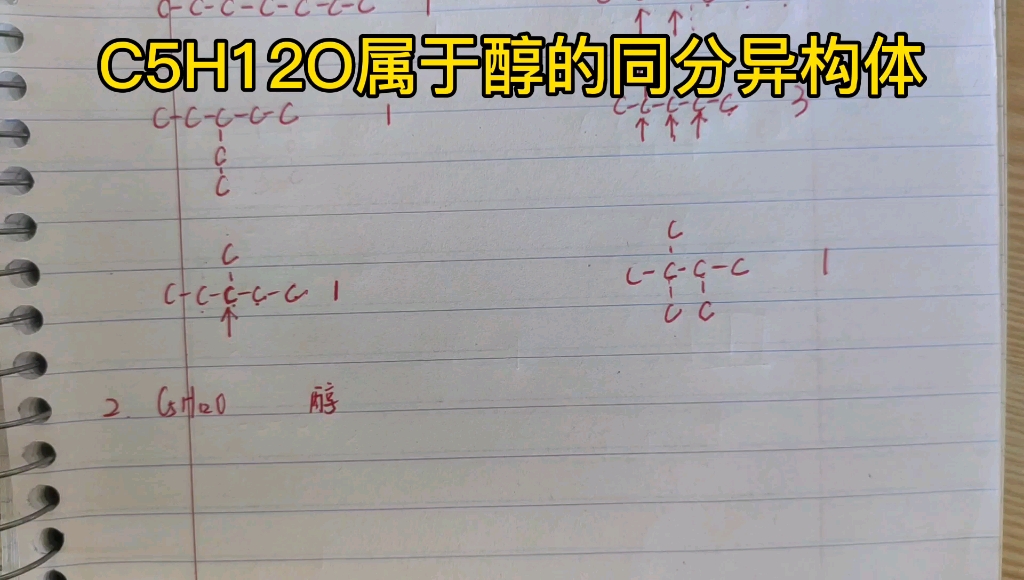 C-C-C-C-C-C-C 1
C5H12O属于醇的同分异构体
C-C-C-C-C 1
C
C
C-C-C-C-C 3
C
C-C-C-C-C 1
C
C-C-C-C 1
C C
2. C5H12O 醇